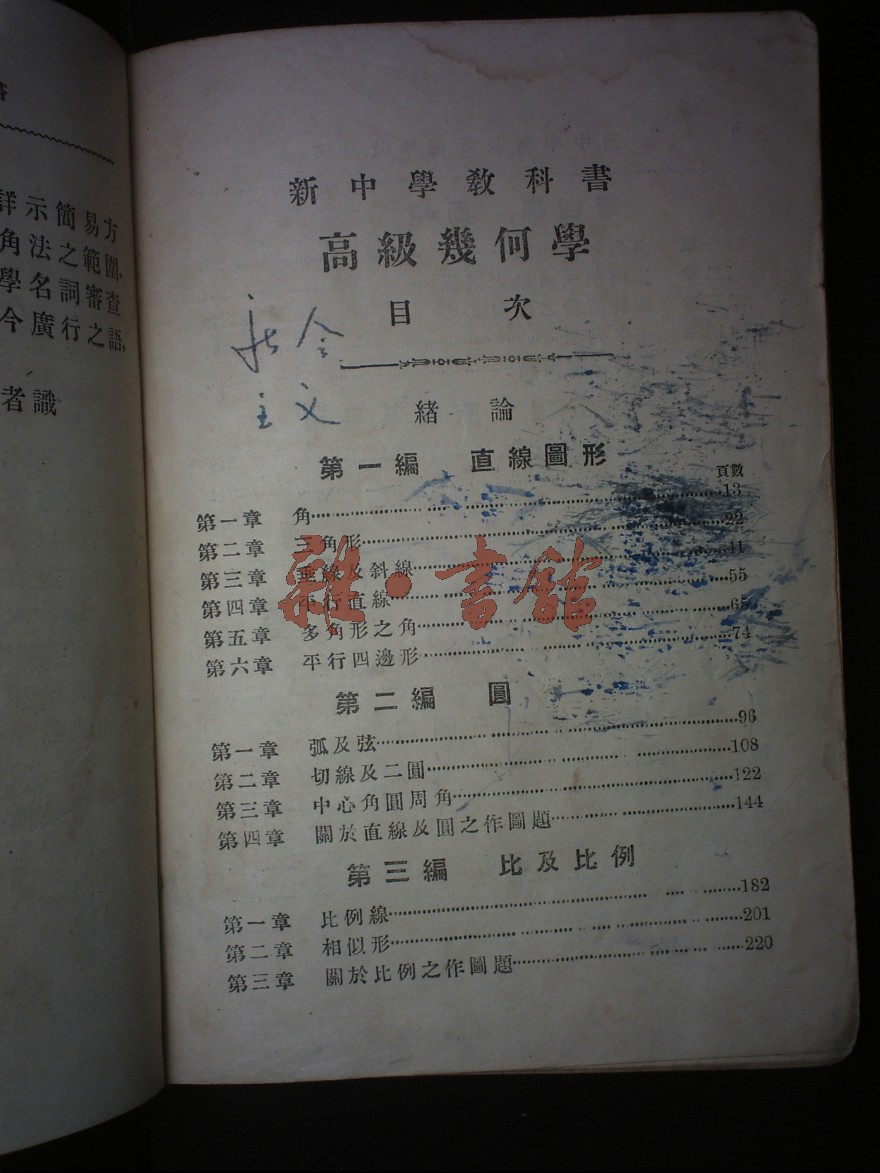 詳示簡易方
角法之範圍,
學名詞審查
今廣行之語,
者識
新中學教科書
高級幾何學
目 次
緒 論
第一編 直線圖形
頁數
第一章 角……13
第二章 三角形……22
第三章 垂線及斜線……41
第四章 平行直線……55
第五章 多角形之角……65
第六章 平行四邊形……74
第二編 圓
第一章 弧及弦……96
第二章 切線及二圓……108
第三章 中心角圓周角……122
第四章 關於直線及圓之作圖題……144
第三編 比及比例
第一章 比例線……182
第二章 相似形……201
第三章 關於比例之作圖題……220
雜·書館